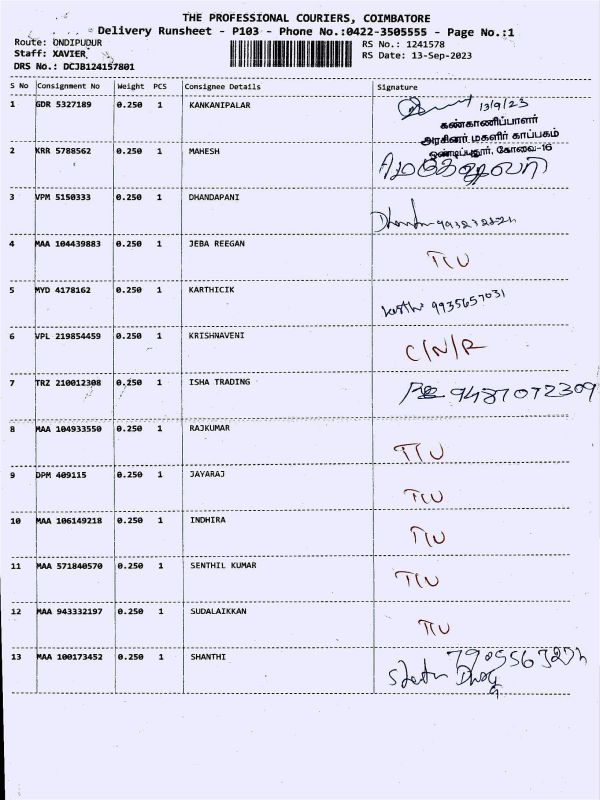 THE PROFESSIONAL COURIERS, COIMBATORE
Delivery Runsheet - P103 - Phone No.:0422-3505555 - Page No.:1
Route: ONDIPUDUR
RS No.: 1241578
Staff: XAVIER
RS Date: 13-Sep-2023
DRS No.: DCJB124157801
S No Consignment No Weight PCS Consignee Details Signature
1 GDR 5327189 0.250 1 KANKANIPALAR 13/9/23
கண்காணிப்பாளர்
அரசினர் மகளிர் காப்பகம்
ஒண்டிப்புதூர், கோவை-16
2 KRR 5788562 0.250 1 MAHESH
3 VPM 5150333 0.250 1 DHANDAPANI
4 MAA 104439883 0.250 1 JEBA REEGAN T/U
5 MYD 4178162 0.250 1 KARTHICIK 9935657031
6 VPL 219854459 0.250 1 KRISHNAVENI C/N/R
7 TRZ 210012308 0.250 1 ISHA TRADING 9487072309
8 MAA 104933550 0.250 1 RAJKUMAR T/U
9 DPM 409115 0.250 1 JAYARAJ T/U
10 MAA 106149218 0.250 1 INDHIRA T/U
11 MAA 571840570 0.250 1 SENTHIL KUMAR T/U
12 MAA 943332197 0.250 1 SUDALAIKKAN T/U
13 MAA 100173452 0.250 1 SHANTHI